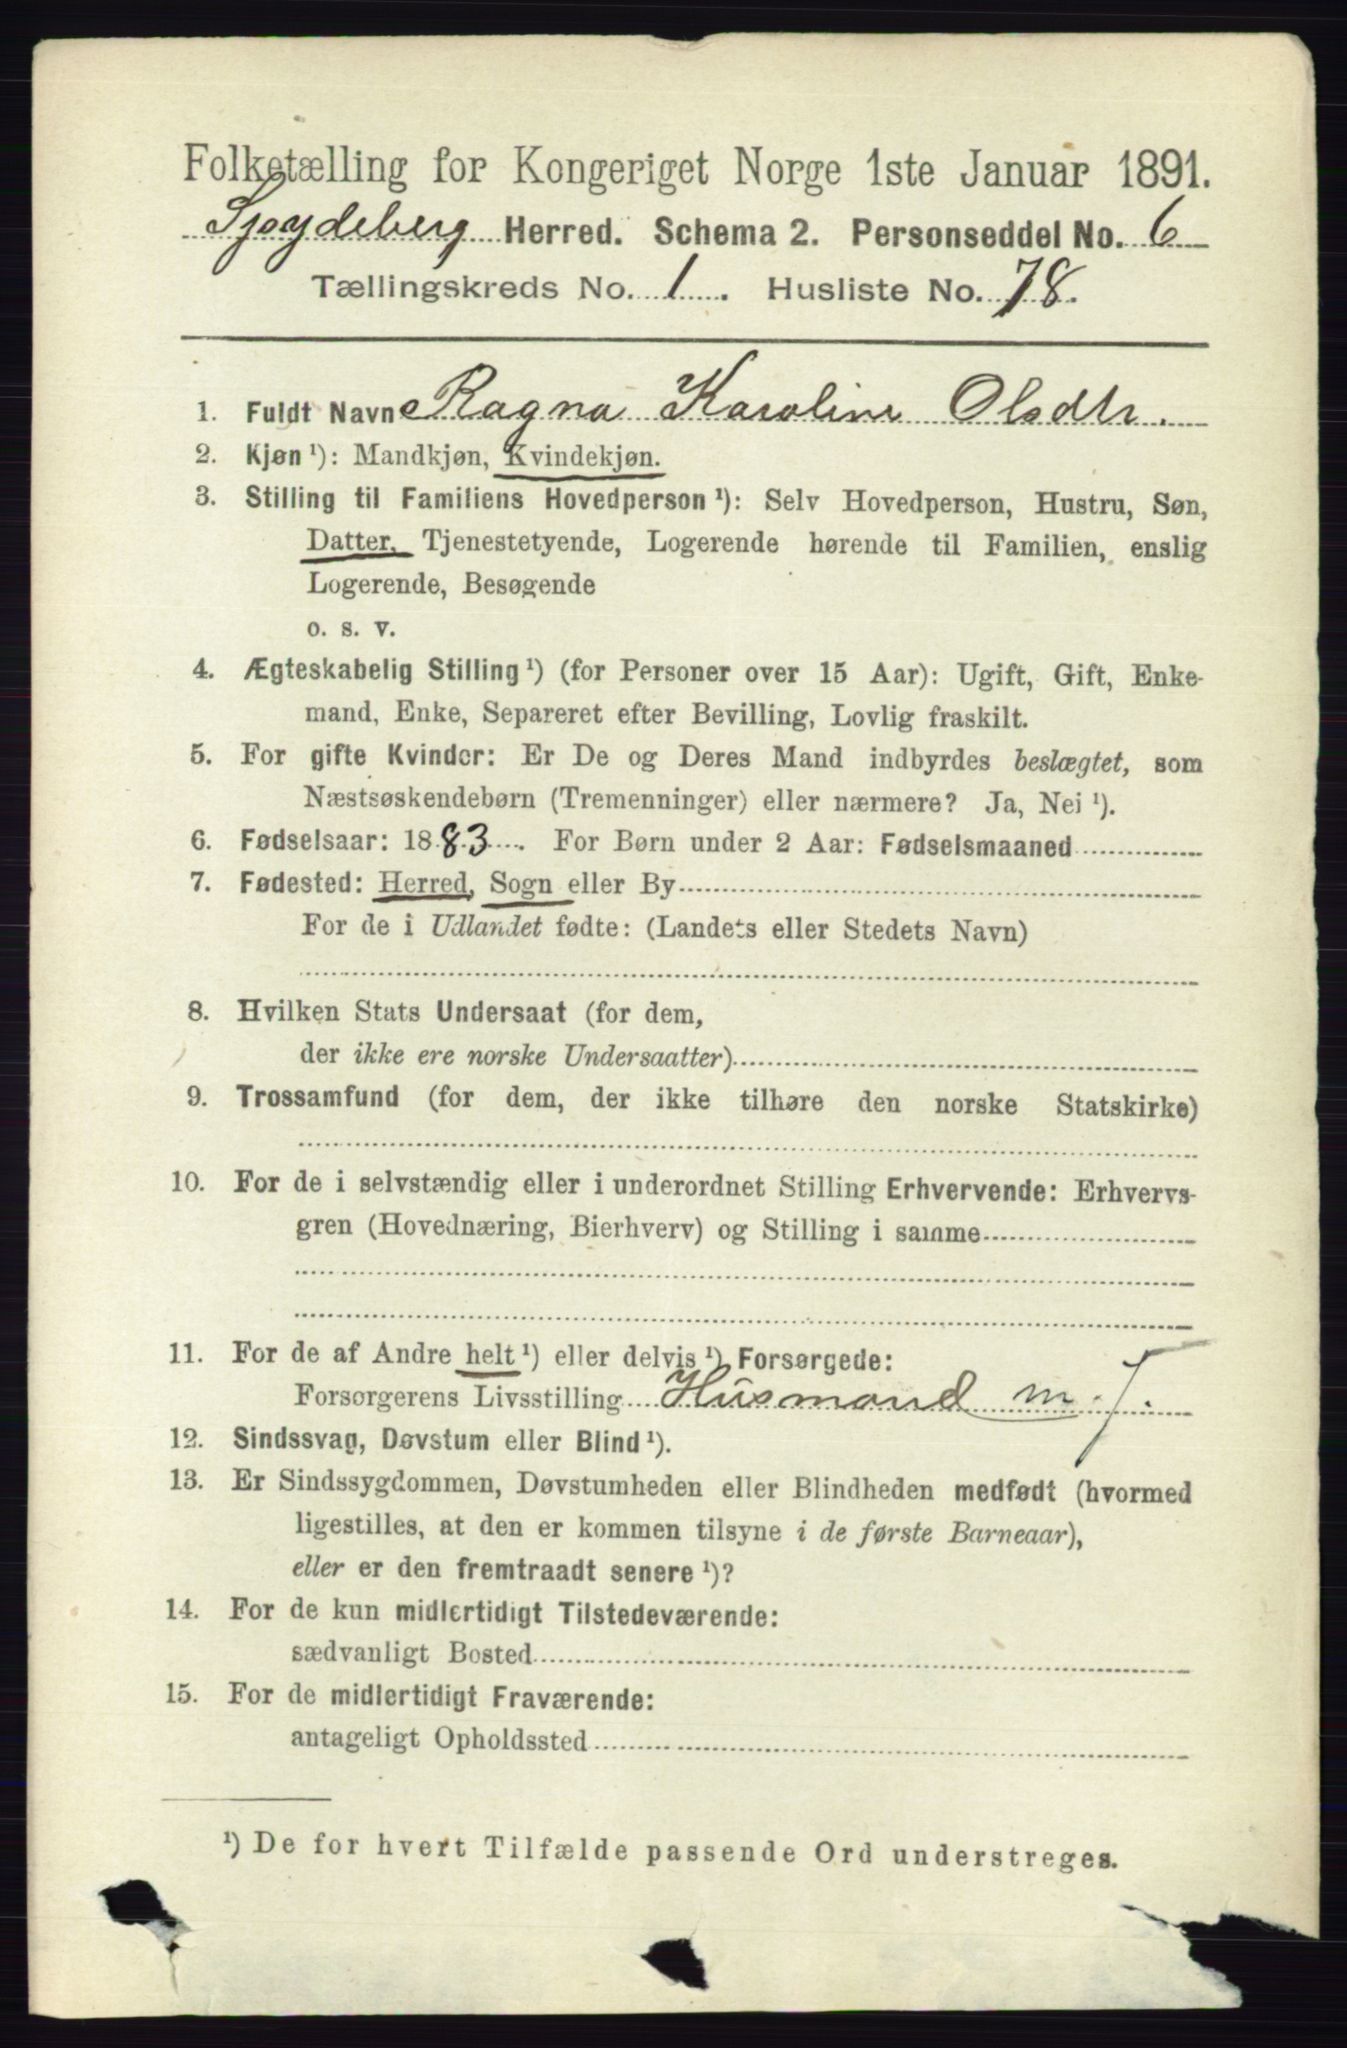 Folketælling for Kongeriget Norge 1ste Januar 1891.
Spydeberg Herred. Schema 2. Personseddel No. 6
Tællingskreds No. 1. Husliste No. 78.
1. Fuldt Navn Ragna Karoline Olsdtr.
2. Kjøn ¹): Mandkjøn, Kvindekjøn.
3. Stilling til Familiens Hovedperson ¹): Selv Hovedperson, Hustru, Søn,
Datter, Tjenestetyende, Logerende hørende til Familien, enslig
Logerende, Besøgende
o. s. v.
4. Ægteskabelig Stilling ¹) (for Personer over 15 Aar): Ugift, Gift, Enke-
mand, Enke, Separeret efter Bevilling, Lovlig fraskilt.
5. For gifte Kvinder: Er De og Deres Mand indbyrdes beslægtet, som
Næstsøskendebørn (Tremenninger) eller nærmere? Ja, Nei ¹).
6. Fødselsaar: 1883. For Børn under 2 Aar: Fødselsmaaned
7. Fødested: Herred, Sogn eller By
For de i Udlandet fødte: (Landets eller Stedets Navn)
8. Hvilken Stats Undersaat (for dem,
der ikke ere norske Undersaatter)
9. Trossamfund (for dem, der ikke tilhøre den norske Statskirke)
10. For de i selvstændig eller i underordnet Stilling Erhvervende: Erhvervs-
gren (Hovednæring, Bierhverv) og Stilling i samme
11. For de af Andre helt ¹) eller delvis ¹) Forsørgede:
Forsørgerens Livsstilling Husmand m. J.
12. Sindssvag, Døvstum eller Blind ¹).
13. Er Sindssygdommen, Døvstumheden eller Blindheden medfødt (hvormed
ligestilles, at den er kommen tilsyne i de første Barneaar),
eller er den fremtraadt senere ¹)?
14. For de kun midlertidigt Tilstedeværende:
sædvanligt Bosted
15. For de midlertidigt Fraværende:
antageligt Opholdssted
¹) De for hvert Tilfælde passende Ord understreges.